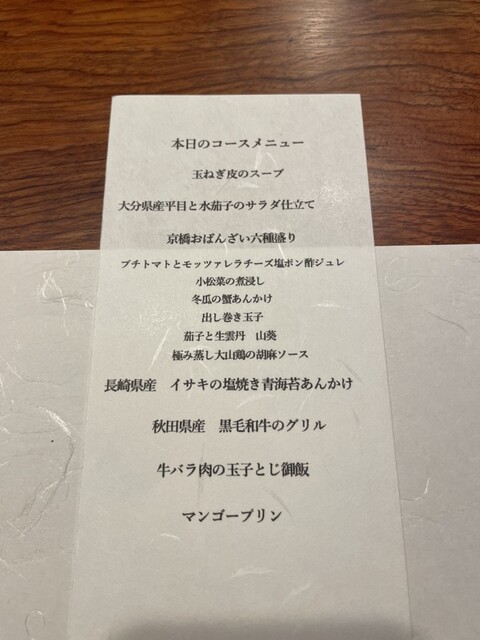 本日のコースメニュー
玉ねぎ皮のスープ
大分県産平目と水茄子のサラダ仕立て
京橋おばんざい六種盛り
プチトマトとモッツァレラチーズ塩ポン酢ジュレ
小松菜の煮浸し
冬瓜の蟹あんかけ
出し巻き玉子
茄子と生雲丹　山葵
極み蒸し大山鶏の胡麻ソース
長崎県産　イサキの塩焼き青海苔あんかけ
秋田県産　黒毛和牛のグリル
牛バラ肉の玉子とじ御飯
マンゴープリン